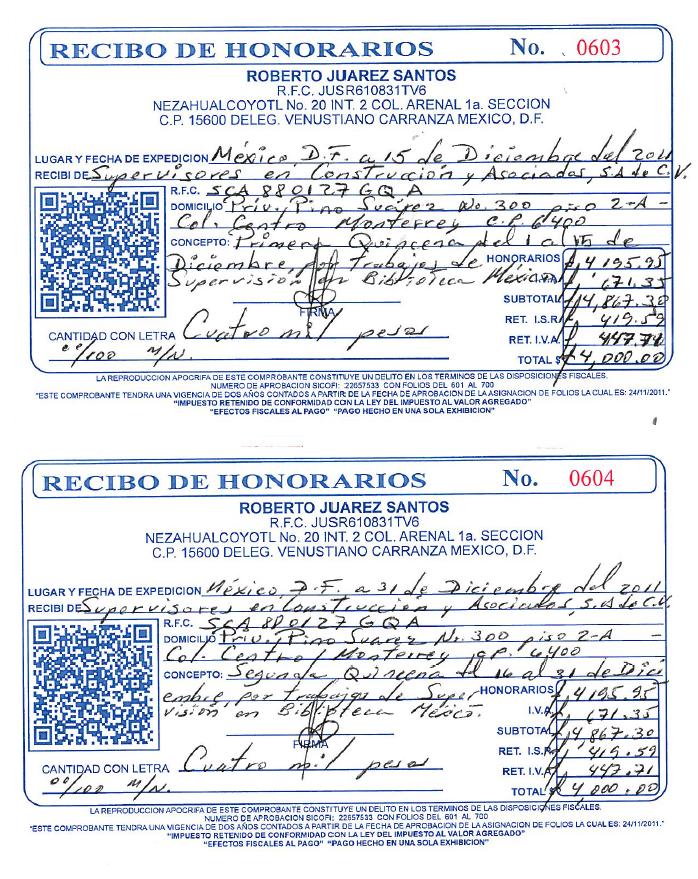 RECIBO DE HONORARIOS No. 0603
ROBERTO JUAREZ SANTOS
R.F.C. JUSR610831TV6
NEZAHUALCOYOTL No. 20 INT. 2 COL. ARENAL 1a. SECCION
C.P. 15600 DELEG. VENUSTIANO CARRANZA MEXICO, D.F.
LUGAR Y FECHA DE EXPEDICION México, D.F. a 15 de Diciembre del 2011
RECIBI DE Supervisores en Construcción y Asociados, S.A de C.V.
R.F.C. SCA 880127 GQA
DOMICILIO Priv. Pino Suárez No. 300 piso 2-A -
Col. Centro Monterrey C.P. 6400
CONCEPTO: Primera Quincena del 1 al 15 de
Diciembre, por trabajos de HONORARIOS 4,195.95
Supervisión en Biblioteca México. I.V.A. 671.35
SUBTOTAL 4,867.30
FIRMA RET. I.S.R. 419.59
CANTIDAD CON LETRA Cuatro mil pesos RET. I.V.A. 447.71
00/100 M/N. TOTAL $ 4,000.00
LA REPRODUCCION APOCRIFA DE ESTE COMPROBANTE CONSTITUYE UN DELITO EN LOS TERMINOS DE LAS DISPOSICIONES FISCALES.
NUMERO DE APROBACION SICOFI: 22657533 CON FOLIOS DEL 601 AL 700
"ESTE COMPROBANTE TENDRA UNA VIGENCIA DE DOS AÑOS CONTADOS A PARTIR DE LA FECHA DE APROBACION DE LA ASIGNACION DE FOLIOS LA CUAL ES: 24/11/2011."
"IMPUESTO RETENIDO DE CONFORMIDAD CON LA LEY DEL IMPUESTO AL VALOR AGREGADO"
"EFECTOS FISCALES AL PAGO" "PAGO HECHO EN UNA SOLA EXHIBICION"
RECIBO DE HONORARIOS No. 0604
ROBERTO JUAREZ SANTOS
R.F.C. JUSR610831TV6
NEZAHUALCOYOTL No. 20 INT. 2 COL. ARENAL 1a. SECCION
C.P. 15600 DELEG. VENUSTIANO CARRANZA MEXICO, D.F.
LUGAR Y FECHA DE EXPEDICION México, D.F. a 31 de Diciembre del 2011
RECIBI DE Supervisores en Construcción y Asociados, S.A de C.V.
R.F.C. SCA 880127 GQA
DOMICILIO Priv. Pino Suarez No. 300 piso 2-A -
Col. Centro Monterrey C.P. 6400
CONCEPTO: Segunda, Quincena del 16 al 31 de Dici
embre, por trabajos de Super HONORARIOS 4,195.95
visión en Biblioteca México. I.V.A. 671.35
SUBTOTAL 4,867.30
FIRMA RET. I.S.R. 419.59
CANTIDAD CON LETRA Cuatro mil pesos RET. I.V.A. 447.71
00/100 M/N. TOTAL $ 4,000.00
LA REPRODUCCION APOCRIFA DE ESTE COMPROBANTE CONSTITUYE UN DELITO EN LOS TERMINOS DE LAS DISPOSICIONES FISCALES.
NUMERO DE APROBACION SICOFI: 22657533 CON FOLIOS DEL 601 AL 700
"ESTE COMPROBANTE TENDRA UNA VIGENCIA DE DOS AÑOS CONTADOS A PARTIR DE LA FECHA DE APROBACION DE LA ASIGNACION DE FOLIOS LA CUAL ES: 24/11/2011."
"IMPUESTO RETENIDO DE CONFORMIDAD CON LA LEY DEL IMPUESTO AL VALOR AGREGADO"
"EFECTOS FISCALES AL PAGO" "PAGO HECHO EN UNA SOLA EXHIBICION"